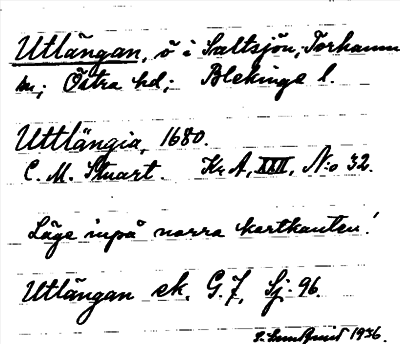 Utlängan, ö i Saltsjön, Torhamn
sn; Östra hd; Blekinge l.
Uttlängia, 1680.
C. M. Stuart. Kr. A, XXII, N:o 32.
Läge inpå norra kartkanten!
Utlängan ek. G. 7, Sj. 96.
1936.